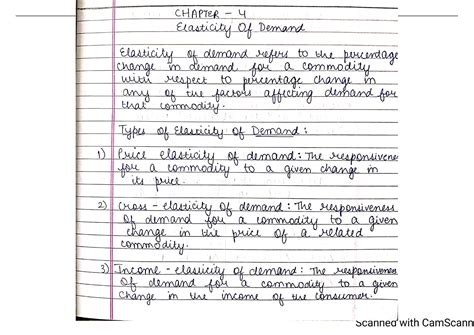 CHAPTER - 4
Elasticity Of Demand
Elasticity of demand refers to the percentage
change in demand for a commodity
with respect to percentage change in
any of the factors affecting demand for
that commodity.
Types of Elasticity Of Demand :
1) Price elasticity of demand : The responsivenes
for a commodity to a given change in
its price.
2) Cross - elasticity of demand : The responsiveness
of demand for a commodity to a given
change in the price of a related
commodity.
3) Income - elasticity of demand : The responsivenes
of demand for a commodity to a given
change in the income of the consumer.
Scanned with CamScann